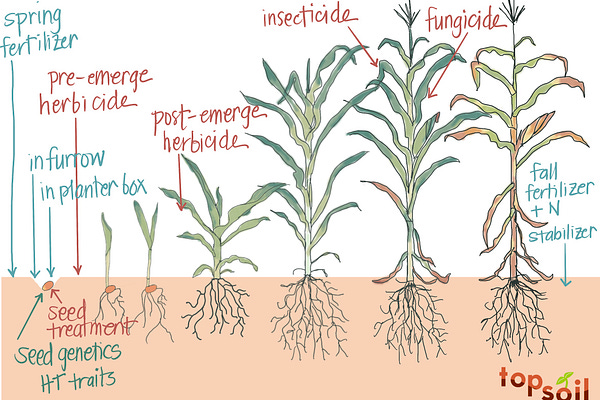 spring
fertilizer
pre-emerge
herbicide
in furrow
in planter box
post-emerge
herbicide
insecticide
fungicide
fall
fertilizer
+ N
stabilizer
seed
treatment
seed genetics
HT traits
topsoil